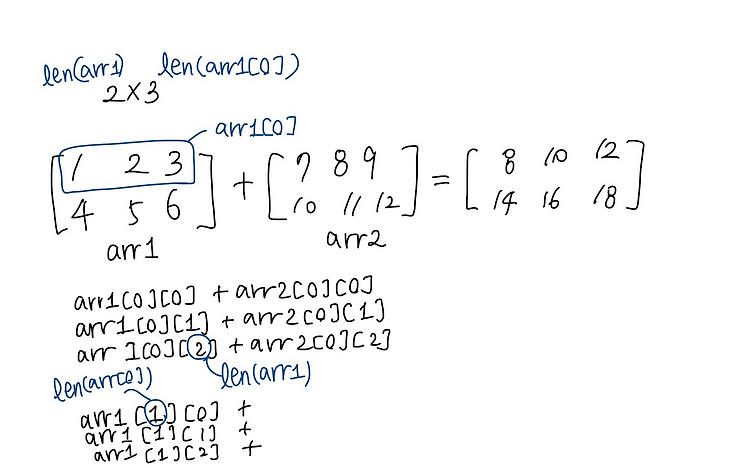 len(arr1) len(arr1[0])
2×3
arr1[0]
[1 2 3] + [7 8 9] = [8 10 12]
[4 5 6] [10 11 12] [14 16 18]
arr1 arr2
arr1[0][0] + arr2[0][0]
arr1[0][1] + arr2[0][1]
arr1[0][2] + arr2[0][2]
len(arr[0]) len(arr1)
arr1[1][0] +
arr1[1][1] +
arr1[1][2] +